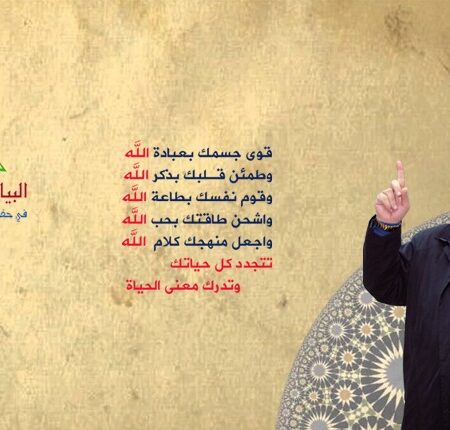 قوى جسمك بعبادة اللَّه
وطمئن قلبك بذكر اللَّه
وقوم نفسك بطاعة اللَّه
واشحن طاقتك بحب اللَّه
واجعل منهجك كلام اللَّه
تتجدد كل حياتك
وتدرك معنى الحياة